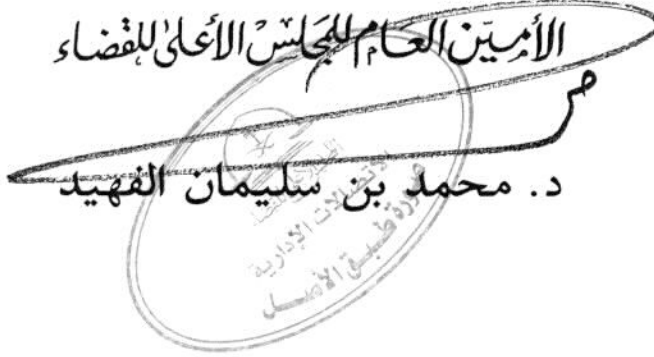 الأمين العام للمجلس الأعلى للقضاء
د. محمد بن سليمان الفهيد
الاتصالات الإدارية
صورة طبق الأصل